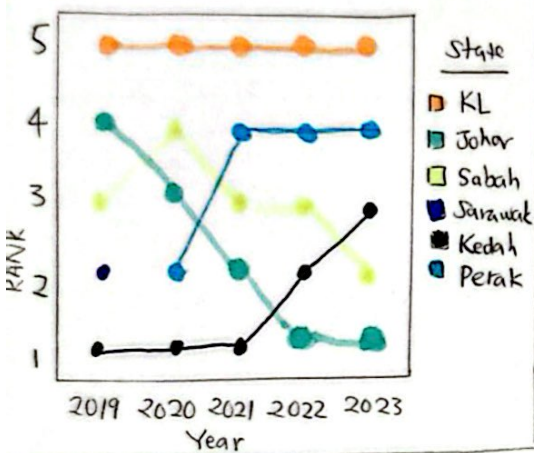 5
4
3
2
1
RANK
2019 2020 2021 2022 2023
Year
State
KL
Johor
Sabah
Sarawak
Kedah
Perak